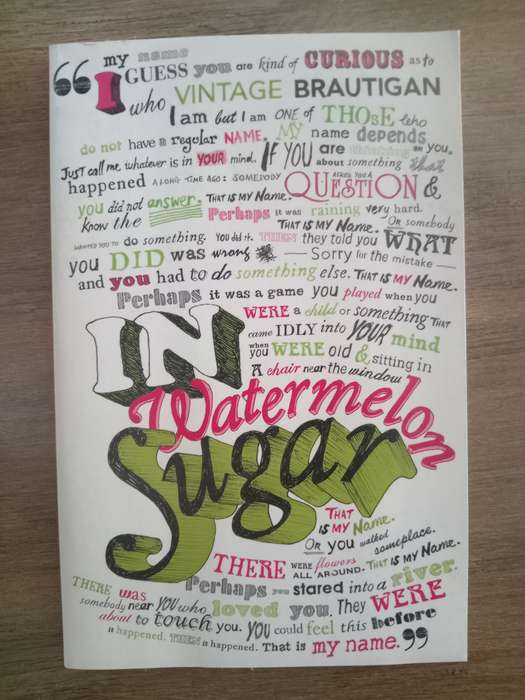 “ my name
I GUESS you are kind of CURIOUS as to
who VINTAGE BRAUTIGAN
I am but I am ONE of THOSE who
do not have a regular NAME. MY name depends on you.
Just call me whatever is in YOUR mind. IF YOU are thinking about something that
happened A LONG TIME AGO: SOMEBODY ASKED YOU A QUESTION &
you did not answer. THAT IS MY Name.
know the Perhaps it was raining very hard.
THAT IS MY Name. OR somebody
WANTED YOU TO do something. YOU did it. THEN they told you WHAT
you DID was wrong — Sorry for the mistake —
and you had to do something else. THAT IS MY Name.
Perhaps it was a game you played when you
WERE a child or something THAT
came IDLY into YOUR mind
when you WERE old & sitting in
A chair near the window
IN
Watermelon
Sugar
THAT
IS MY Name.
OR you walked someplace.
THERE WERE flowers ALL AROUND. THAT IS MY Name.
Perhaps you stared into a river.
THERE was somebody near YOU who loved you. They WERE
about to touch you. YOU could feel this before
it happened. THEN it happened. That is my name.”